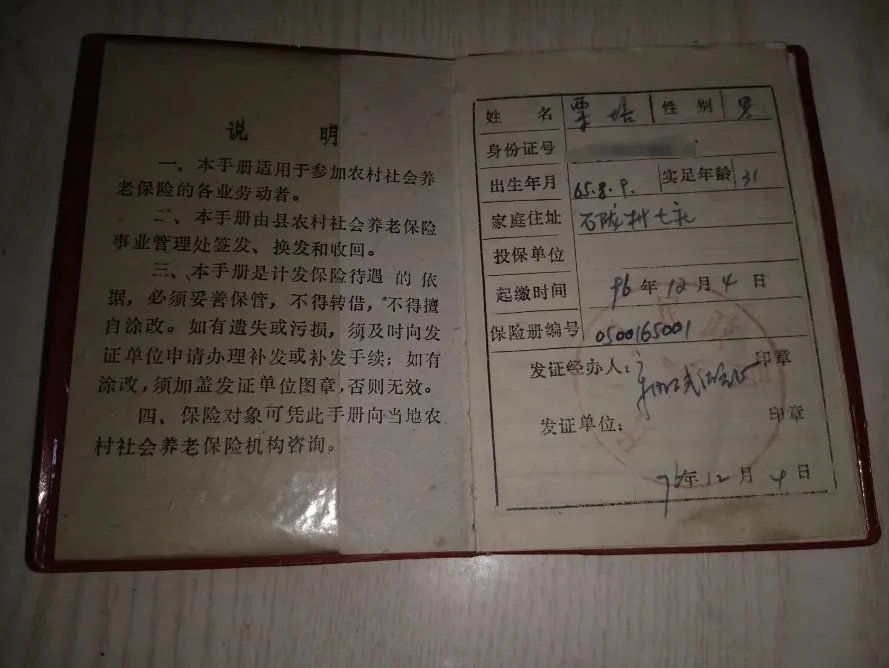 说 明
一、本手册适用于参加农村社会养
老保险的各业劳动者。
二、本手册由县农村社会养老保险
事业管理处签发、换发和收回。
三、本手册是计发保险待遇 的 依
据，必须妥善保管，不得转借，不得擅
自涂改。如有遗失或污损，须及时向发
证单位申请办理补发或补发手续；如有
涂改，须加盖发证单位图章，否则无效。
四、保险对象可凭此手册向当地农
村社会养老保险机构咨询。
姓 名 性 别 男
身份证号
出生年月 65.8.9. 实足年龄 31
家庭住址 石陇村七
投保单位
起缴时间 96年12月4日
保险册编号 0500165001
发证经办人： 印章
发证单位： 印章
96年12月4日